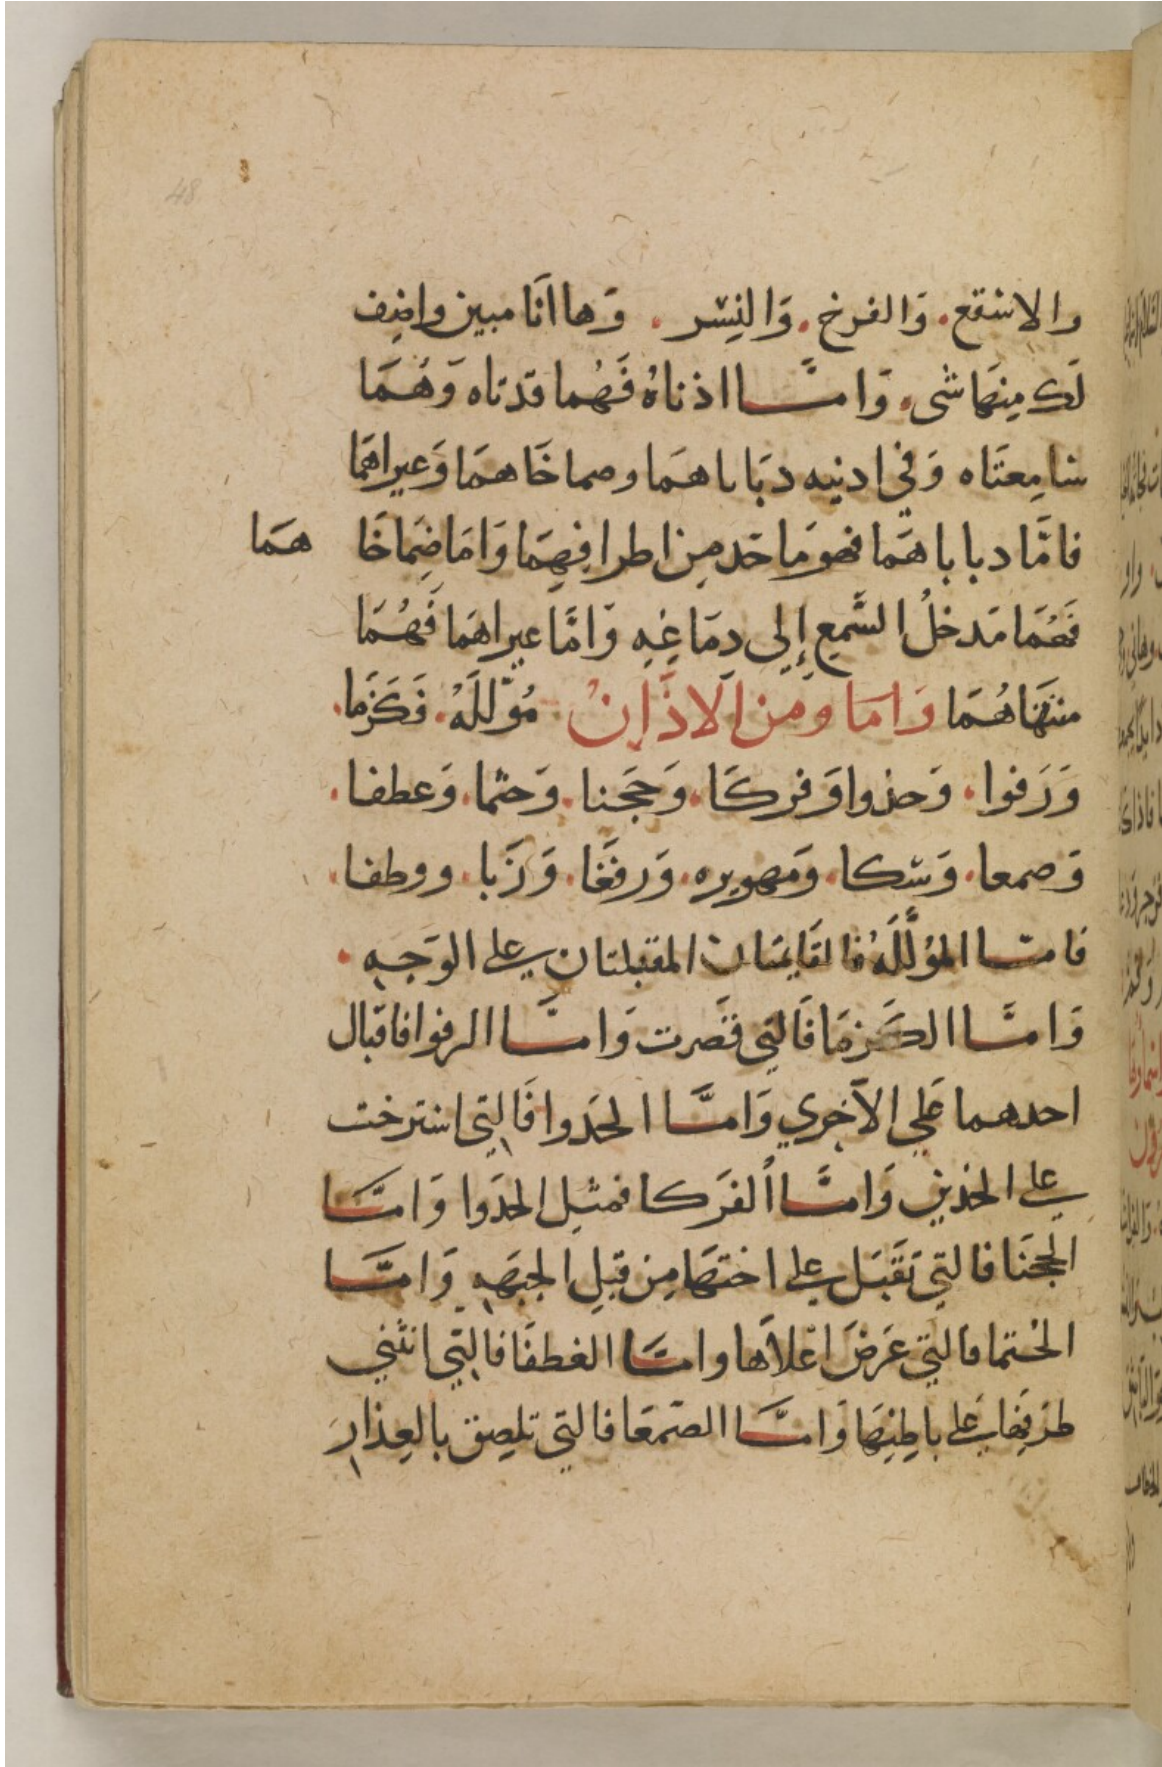 48
والاسقع . وَالفرخ . وَالنِسر . وَها انَا مبين واضف
لَك مِنهَا شى . وَامَّا اذناهُ فَهُما قدتاه وَهُمَا
سامِعتَاه وَفي ادنيه دبَاباهمَا وصماخَاهمَا وَعيراهمَا
فامَّا دباباهمَا فهو مَا حَد مِن اطرافِهمَا وَامَا ضِمَاخَا همَا
فَهُمَا مَدخلُ السَّمع إِلى دِمَاغِهِ وَامَّا عيراهمَا فَهُمَا
منتهَاهُمَا وَامَا ومن الَاذَانُ مُوَّللَهُ . فَكَزمَا .
وَرَفوا . وَحذوا وَفركَا . وَحَجَنا . وَحثما . وَعطفا .
وَصمعا . وَسكا . وَمهوبره . وَرفغَا . وَزَبا . ووطفا .
فامّا المؤَلَّلَهُ فالقَايمتَان المقبلتان على الوَجهِ .
وَامَّا الكَزمَا فَالتي قصُرت وَامَّا الرفوا فاقبَال
احدهما عَلى الآخري وَامَّا الحَدوا فَالتِي استرخت
على الخدين وَامَّا الفَركا فمثِل الحدَوا وَامَّا
الحجنَا فالتي تَقبَل على اختهَا مِن قبِل الجبهَهِ وَامَّا
الحْتما فالتي عَرضَ اعْلاَها وامَّا الغطفَا فالتِي انثني
طرَفِهَا عَلى باطِنِهَا وَامَّا الصّمعَا فالتي تلصِق بالعِذارِ